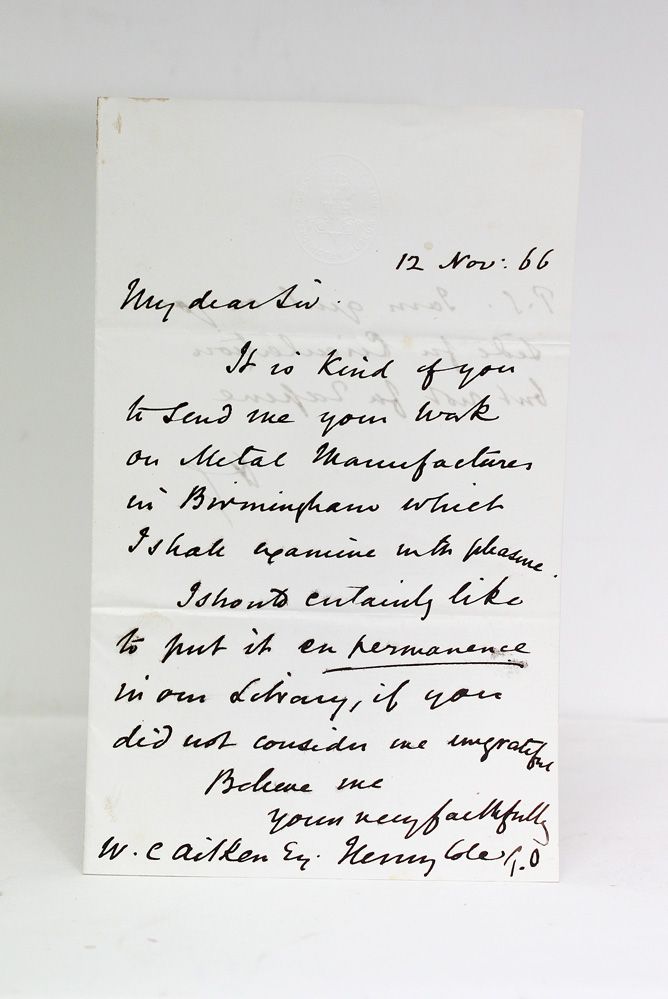 12 Nov: 66
My dear Sir.
It is kind of you
to send me your work
on Metal Manufactures
in Birmingham which
I shall examine with pleasure.
I should certainly like
to put it en permanence
in our Library, if you
did not consider me ungrateful
Believe me
yours very faithfully
W. C Aitken Esq. Henry Cole
P.S. I am
for Circulation
but not for